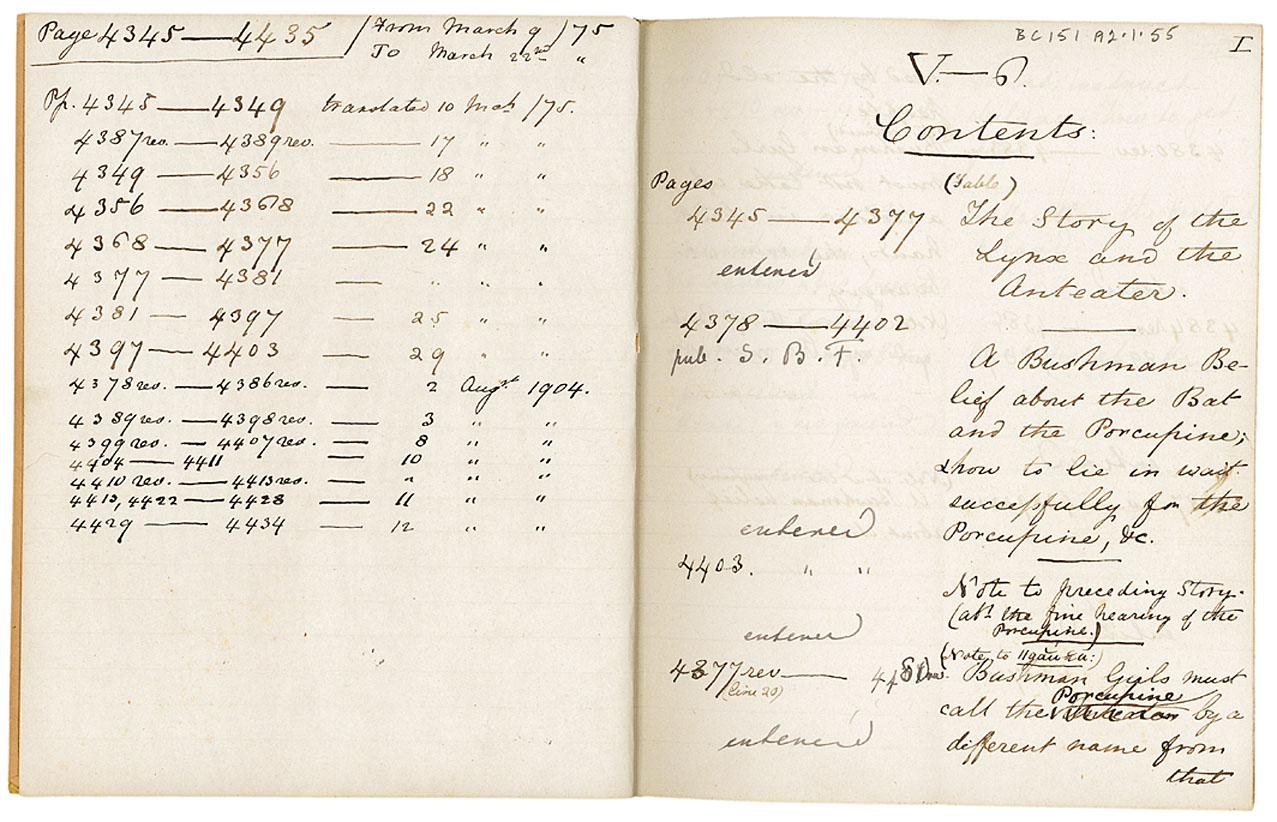 Page 4345 — 4435 / From March 9 / 75
To March 22nd "
Pp. 4345 — 4349 translated 10 Mch /75.
4387 rev. — 4389 rev. — 17 " "
4349 — 4356 — 18 " "
4356 — 4368 — 22 " "
4368 — 4377 — 24 " "
4377 — 4381 — " " "
4381 — 4397 — 25 " "
4397 — 4403 — 29 " "
4378 rev. — 4386 rev. — 2 Augst 1904.
4389 rev. — 4398 rev. — 3 " "
4399 rev. — 4407 rev. — 8 " "
4404 — 4411 — 10 " "
4410 rev. — 4413 rev. — " " "
4413, 4422 — 4428 — 11 " "
4429 — 4434 — 12 " "
BC151 A2.1.55
I
V. — 6.
Contents:
Pages (Fable)
4345 — 4377 The Story of the
entered Lynx and the
Anteater.
4378 — 4402
pub. S. B. F. A Bushman Be-
lief about the Bat
and the Porcupine;
& how to lie in wait
successfully for the
entered Porcupine, &c.
4403. " "
Note to preceding Story.
(abt. the fine hearing of the
entered Porcupine.)
(Note to :)
4377 rev — rev. Bushman Girls must
(line 20) Porcupine
call the by a
entered different name from
that